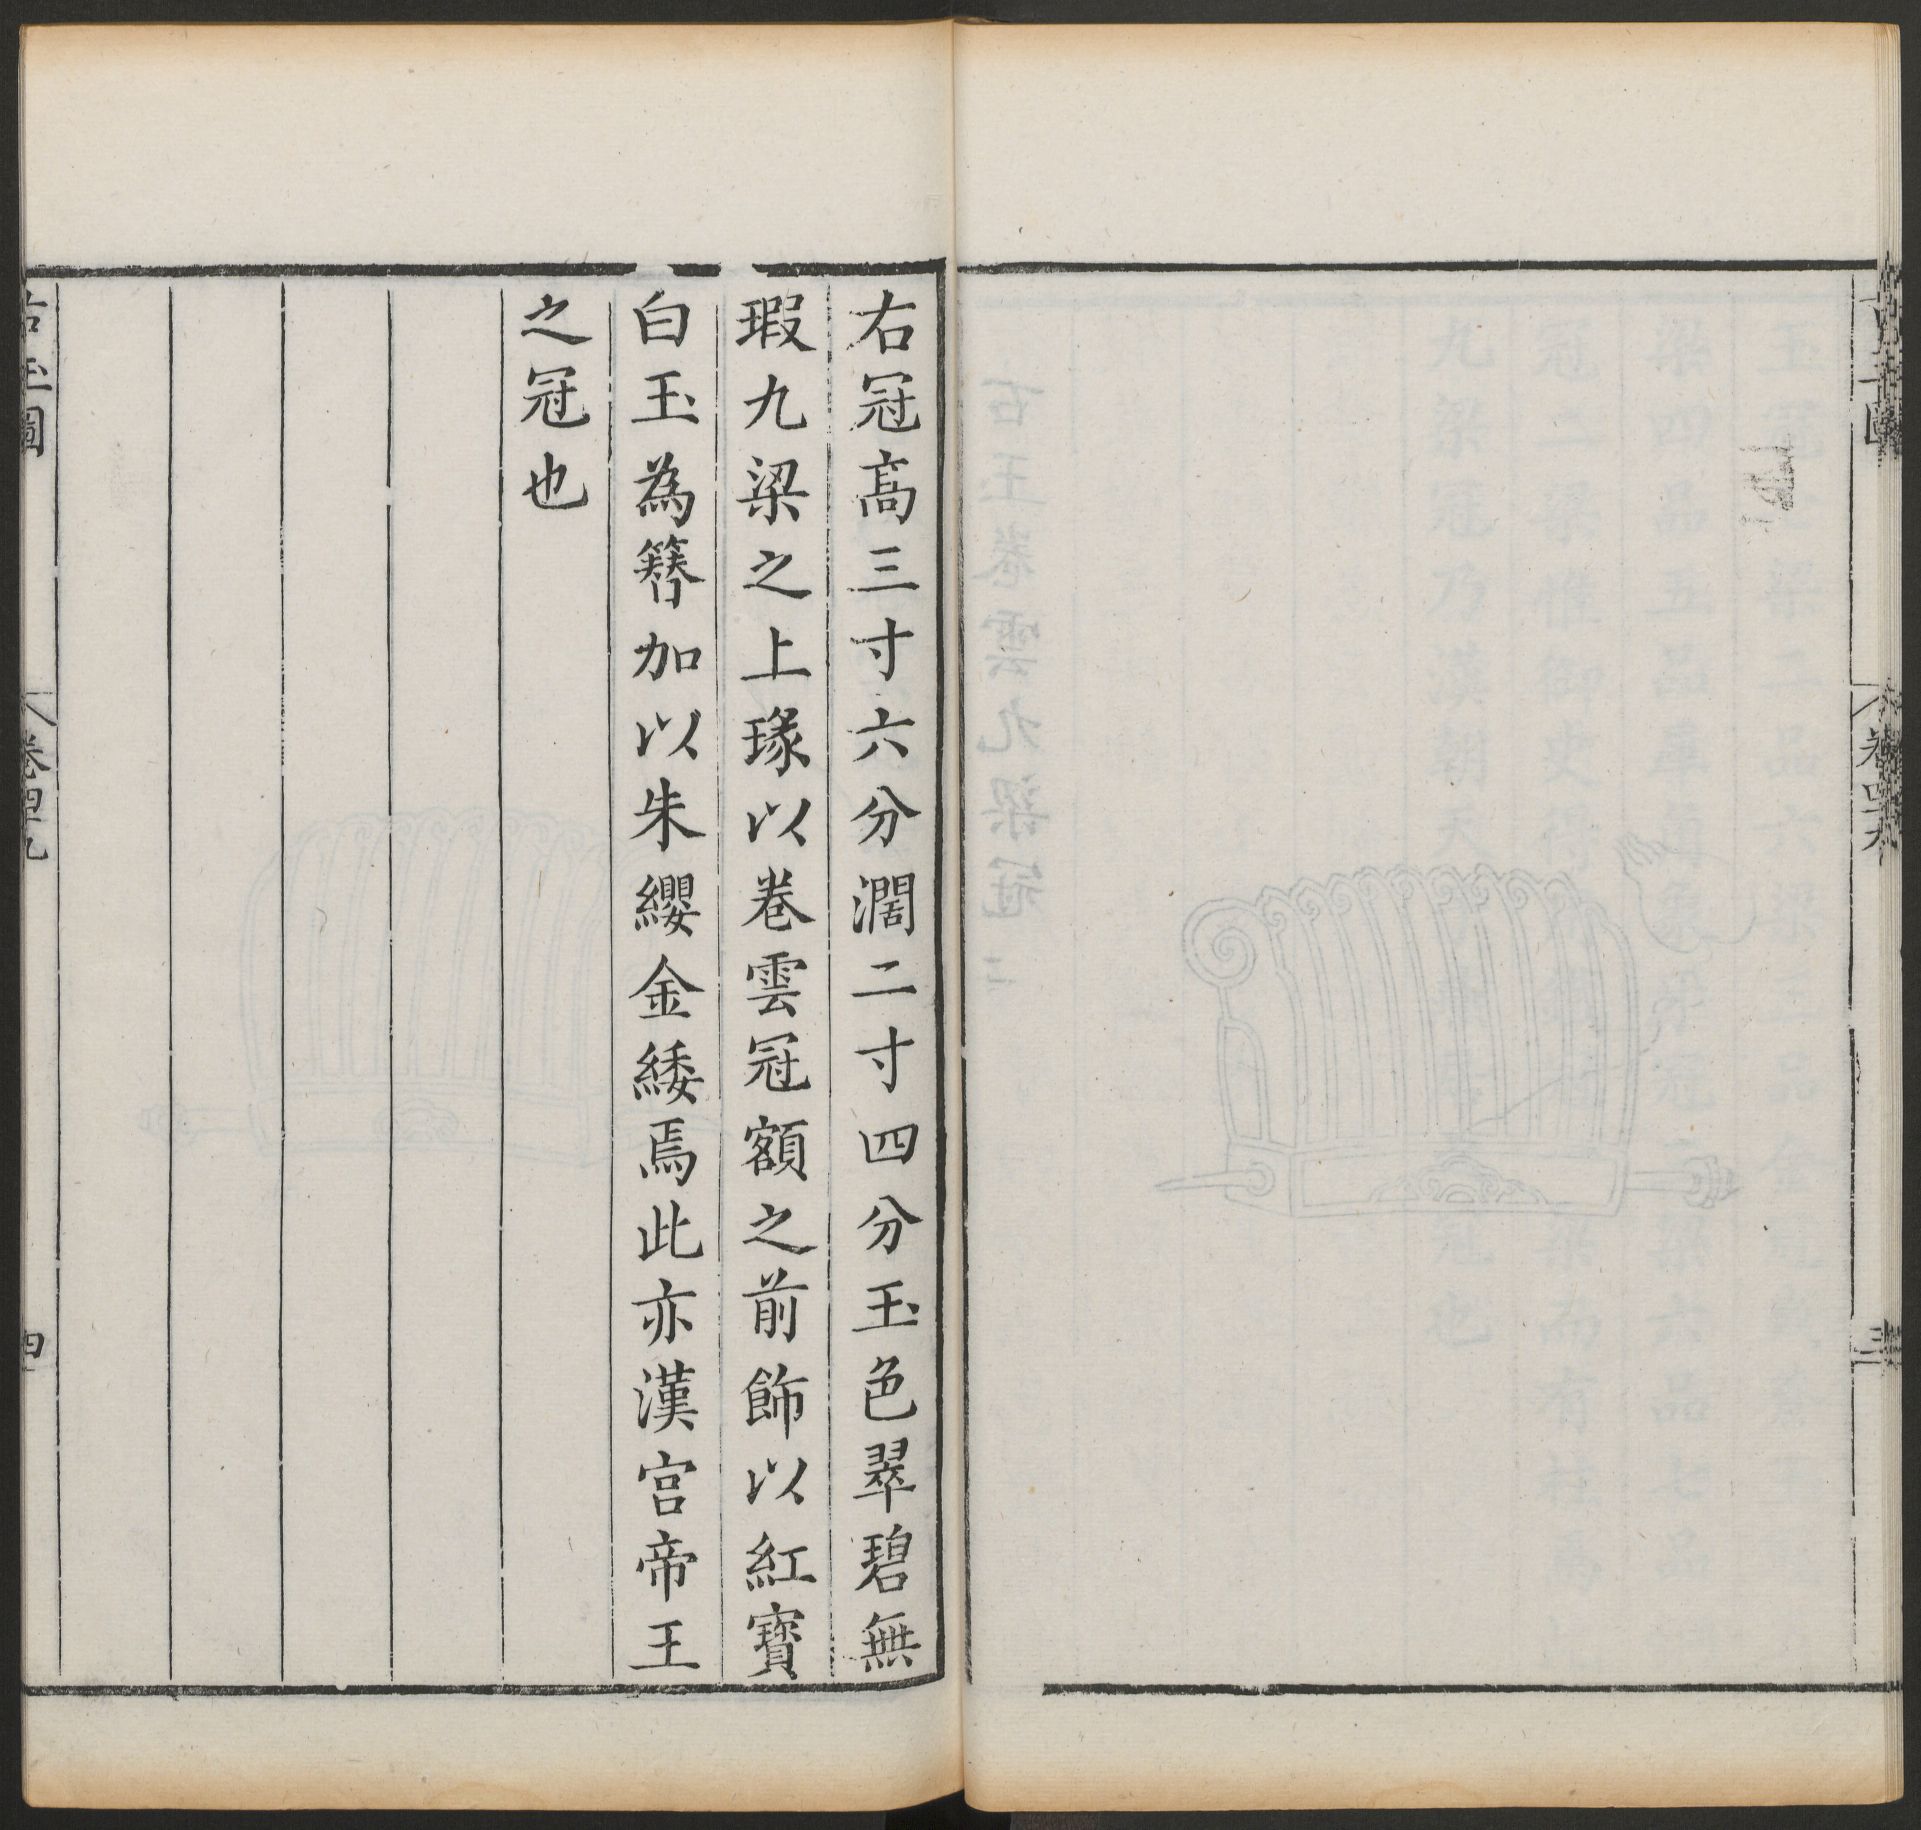 古玉圖
卷四九
三
右冠高三寸六分濶二寸四分玉色翠碧無
瑕九梁之上瑑以卷雲冠額之前飾以紅寶
白玉為簪加以朱纓金緌焉此亦漢宮帝王
之冠也
古玉圖
卷四九
四